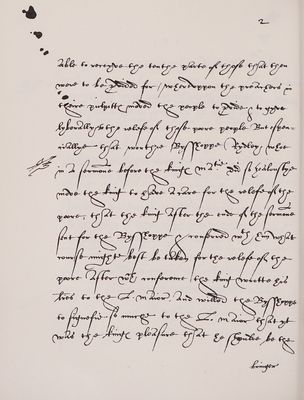 2
Able to receyve the tenthe parte of those that then
were to be provided for / wherevppon the preachers in
theire pulpitts moved the people to
lyberallye the relefe of those pore people But espen
ciallye that worthie Bysshoppe Ridley, whoe
in a sermone before the kings Ma.tie did so
move the king to have a care for the relefe of the
poore, that the king After the end of the sermone
sent for the Bysshoppe & conferred wth him what
might best be taken for the relefe of the
poore After wch conference the king wrotte his
lres to the L. maior, And willed the Bysshoppe
to signefie so muche to the L. maior that yt
was the kings pleasure that he shoulde be the
bringer